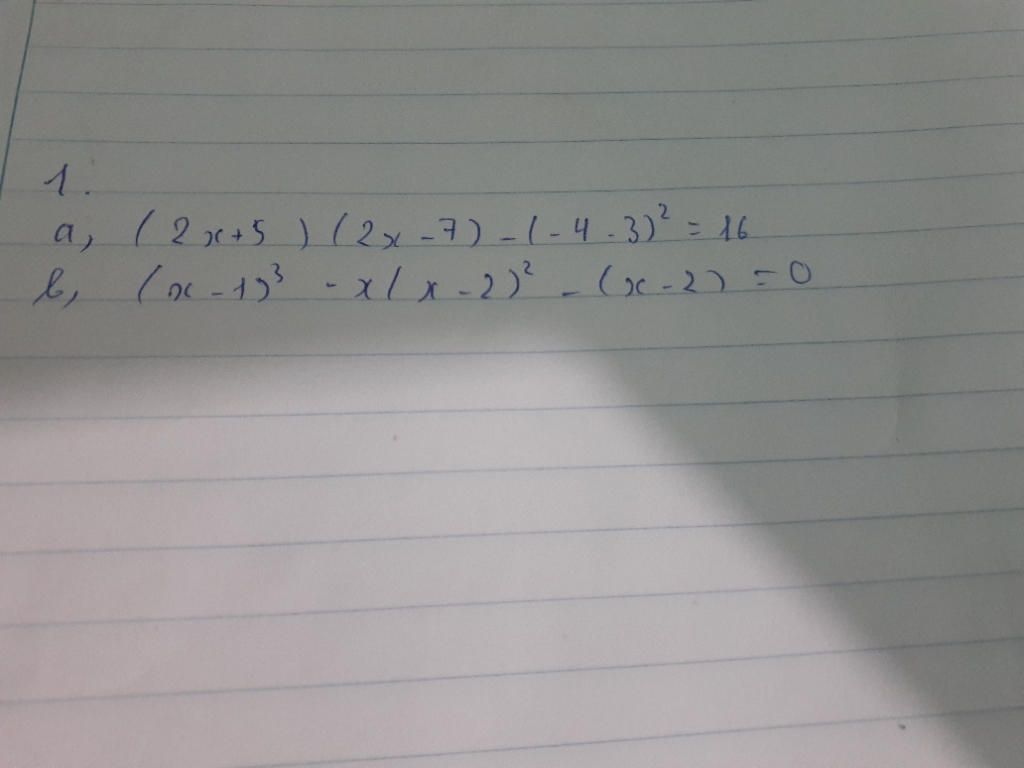 1.
a, (2x+5)(2x-7)-(-4-3)² = 16
b, (x-1)³ - x(x-2)² - (x-2) = 0